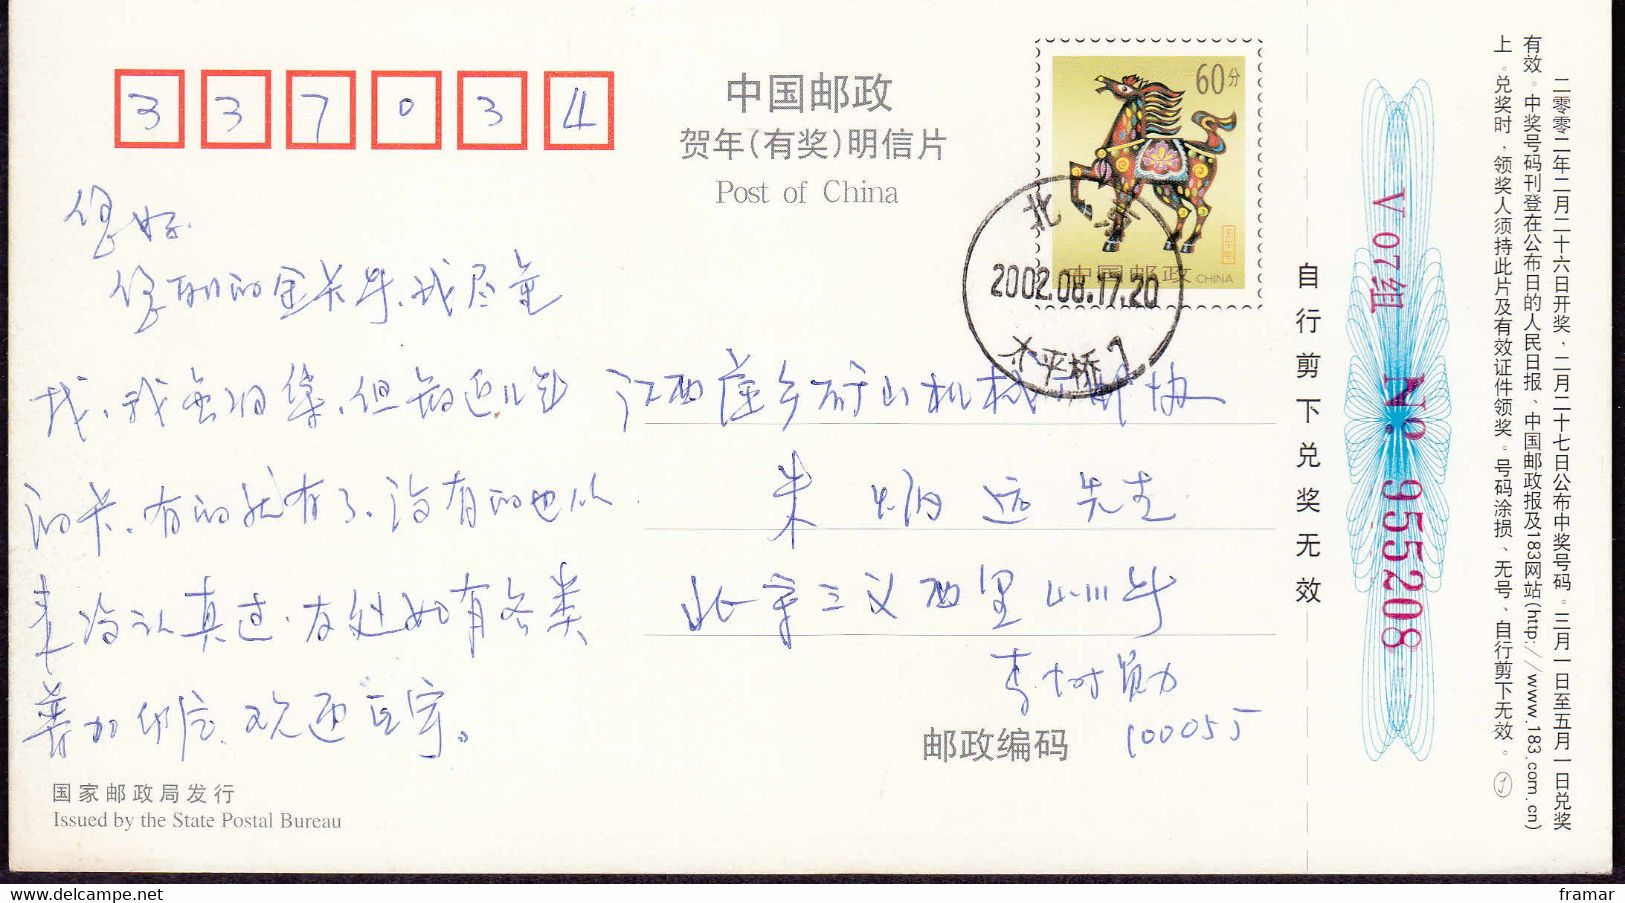 337034
中国邮政
贺年(有奖)明信片
Post of China
60分
壬午年
中国邮政 CHINA
北京
2002.08.17.20
太平桥
您好.
您 的金卡片、我尽全
找、我 集,但 近几年
的卡、有的就有了、没有的也从
来没认真过.友处如有各类
,欢迎 。
江西萍乡矿山机械 邮协
朱炳远先生
北京三义西里
李树勋
邮政编码 100055
国家邮政局发行
Issued by the State Postal Bureau
自行剪下兑奖无效
V 07组 Nº 955208
二零零二年二月二十六日开奖,二月二十七日公布中奖号码。三月一日至五月一日兑奖
有效。中奖号码刊登在公布日的人民日报、中国邮政报及183网站(http://www.183.com.cn)
上。兑奖时,领奖人须持此片及有效证件领奖。号码涂损、无号、自行剪下无效。
framar